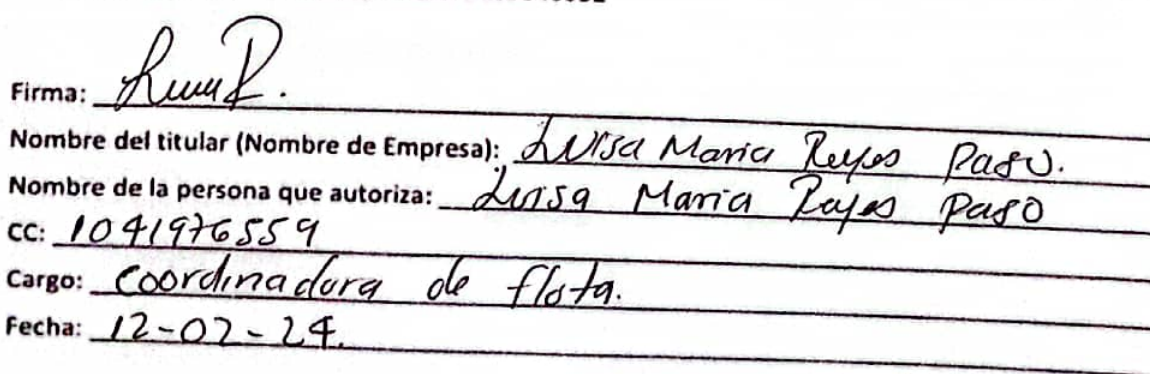 Firma: 
Nombre del titular (Nombre de Empresa): Luisa Maria Reyes Paso.
Nombre de la persona que autoriza: Luisa Maria Reyes Paso
CC: 1041976559
Cargo: Coordinadora de flota.
Fecha: 12-02-24.